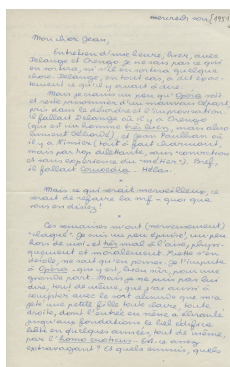 mercredi soir [1951]
Mon cher Jean,
Entretien d'une heure, hier, avec
Delange et Orengo. Je ne sais pas ce qui
en sortira, ni s'il en sortira quelque
chose. Delange, en tout cas, a dit
ce qu'il y avait à dire.
Mais je crains un peu que
et reste prisonnier d'un mauvais départ,
pris dans le désordre et l'improvisation.
Il fallait Delange où il y a Orengo
(qui est un homme très bien, mais
), et Jean Paulhan où
il y a (tout à fait charmant,
mais par trop dilettante, sans conviction
et sans expérience du "métier"). Bref,
il fallait . Hélas.
*
Mais ce qui serait merveilleux, ce
serait de refaire la nrf – quoi que
vous en disiez !
*
Ces semaines m'ont (nerveusement)
. Je suis un peu , un peu
hors de moi, et très mal à l'aise, physi-
quement et moralement. Reste
, ne sait qu'en penser. Je l'impute
à , qui y est, bien sûr, pour une
grande part. Mais je ne puis pas lui
dire, tout de même, que j'ai aussi à
compter avec le sort absurde qui m'a
jeté une petite fille toute claire, toute
droite, dont l'entrée en scène a ébranlé
jusqu'aux fondations le bel édifice
bâti en quelques années, tout de même,
par l'. Est-ce assez
extravagant ? Et quels ennuis, quels